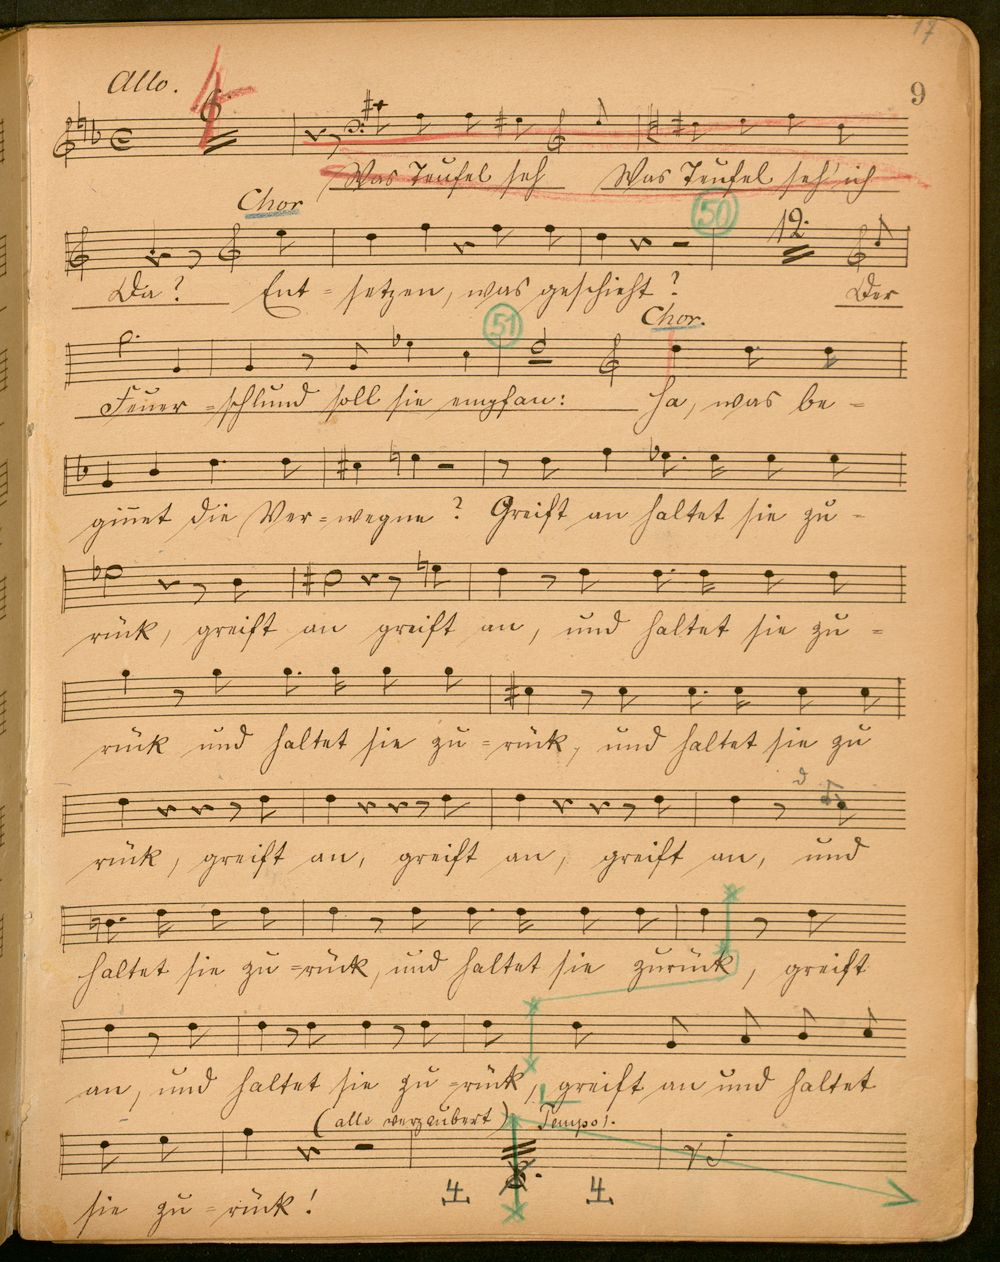 17
9
Allo.
Was Teufel seh Was Teufel seh' ich
Chor
50
12.
Da? Ent - setzen, was geschieht? Der
51
Chor.
Feuer - schlund soll sie empfan: Ha, was be -
ginnet die Ver - wegne? Greift an haltet sie zu -
rück, greift an greift an, und haltet sie zu =
rück und haltet sie zu = rück, und haltet sie zu
rück, greift an, greift an, greift an, und
d
haltet sie zu = rück, und haltet sie zurück, greift
an, und haltet sie zu = rück, greift an und haltet
(alle verzaubert) Tempo I.
4 4
sie zu = rück!